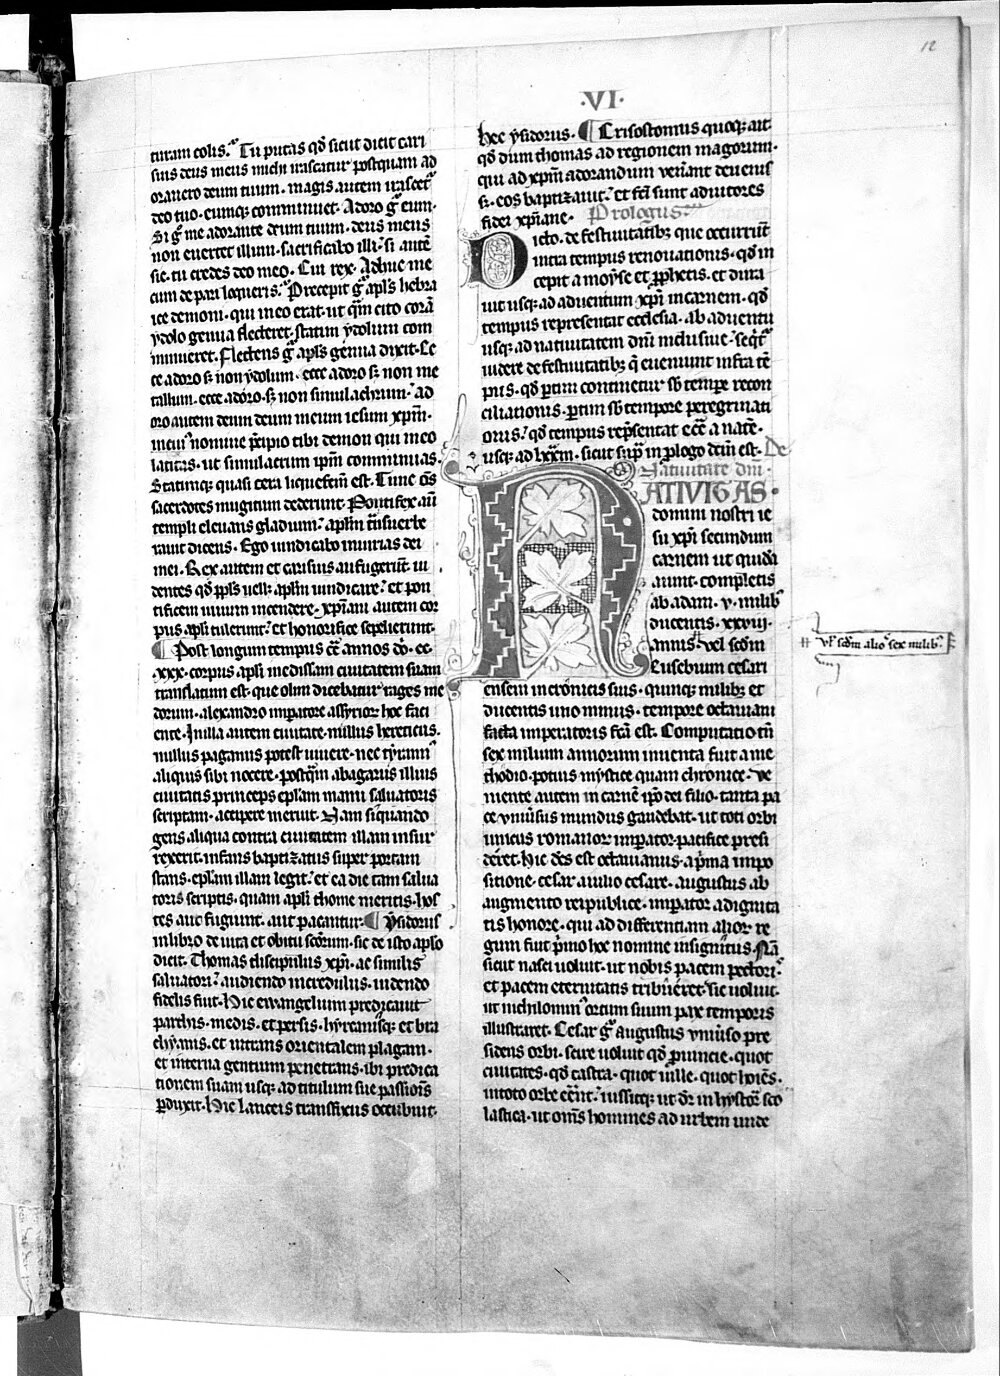 12
·VI·
turam colis. Tu putas qd sicut dicit cari
sius deus meus michi irascatur postquam ad
orauero deum tuum. magis autem irascet
deo tuo. eumq; comminuet. Adoro g eum.
Si g me adorante deum tuum. deus meus
non euertet illum. sacrificabo illi. si aute
sic. tu credes deo meo. Cui rex. Adhuc me
cum de pari loqueris. Precepit g apls hebra
ice demoni. qui in eo erat. ut qm cito cora
ydolo genua flecteret. statim ydolum com
minueret. Flectens g apls genua dixit. Ec
ce adoro s non ydolum. ecce adoro s non me
tallum. ecce adoro. s non simulachrum. ad
oro autem deum deum meum iesum xpm.
in cui nomine pcipio tibi demon qui in eo
latitas. ut simulacrum ipm comminuas.
Statimq; quasi cera liquefem est. Tunc os
sacerdotes mugitum dederunt. Pontifex au
templi eleuans gladium. aplm tnsuerbe
rauit dicens. Ego uindicabo iniurias dei
mei. Rex autem et carisius aufugerut. ui
dentes qd ppls uell aplm uindicare. et pon
tificem uiuum incendere. xpiani autem cor
pus apli tulerunt. et honorifice sepelierunt.
¶ Post longum tempus ce annos do. cc.
.xxx. corpus apli in edissam ciuitatem suam
translatum est. que olim dicebatur rages me
dorum. alexandro impatore assyrior hoc faci
ente. In illa autem ciuitate. nullus hereticus.
nullus paganus potest uiuere. nec tyrann
aliquis sibi nocere. postqm abagarus illius
ciuitatis princeps eplam manu saluatoris
scriptam. accipere meruit. Nam siquando
gens aliqua contra ciuitatem illam insur
rexerit. infans baptizatus super portam
stans. eplam illam legit. et ea die tam salua
toris scriptis. quam apli thome meritis. hos
tes aut fugiunt. aut pacantur. ¶ Ysidorus
in libro de uita et obitu scorum. sic de isto aplo
dicit. Thomas discipulus xpi. ac similis
saluatori. audiendo incredulus. uidendo
fidelis fuit. Hic ewangelium predicauit
parthis. medis. et persis. hyrcanisq; et bra
chyanis. et intrans orientalem plagam.
et interna gentium penetrans. ibi predica
tionem suam usq; ad titulum sue passiois
pduxit. Hic lanceis transfixus occubuit.
hec ysidorus. ¶ Crisostomus quoq; ait.
qd dum thomas ad regionem magorum.
qui ad xpm adorandum venant deuenis
s. eos baptizauit. et fci sunt adiutores
fidei xpiane. Prologus.
Dicto. de festiuitatib; que occurrut
intra tempus renouationis. qd in
cepit a moyse et pphetis. et dura
uit usq; ad aduentum xpi in carnem. qd
tempus representat ecclesia. ab aduentu
usq; ad natiuitatem dni inclusiue. seqt
uidere de festiuitatib; q eueniunt infra te
pus. qd ptim continetur sb tempe recon
ciliationis. ptim sb tempore peregrinati
onis. qd tempus repsentat ecce a nate.
usq; ad lxxm. sicut sup in plogo dcm est. De
Natiuitate dni.
NATIVITAS.
domini nostri ie
su xpi secundum
carnem ut quida
aiunt. completis
ab adam. v. milib
ducentis. xxviii.
annis. vel scdm
Eusebium cesari
ensem in cronicis suis. quinq; milib; et
ducentis uno minus. tempore octauiani
facta imperatoris fca est. Computatio tn
sex milium annorum inuenta fuit a me
thodio. potius mystice quam chronice. Ve
niente autem in carne ipo dei filio. tanta pa
ce vniusus mundus gaudebat. ut toti orbi
unicus romanor impator. pacifice presi
deret. Hic des est octauianus. a pma impo
sitione. cesar a iulio cesare. augustus ab
augmento reipublice. impator a dignita
tis honore. qui ad differentiam alior re
gum fuit pmo hoc nomine insignitus. Na
sicut nasci uoluit. ut nobis pacem pectori
et pacem eternitatis tribueret. sic uoluit.
ut nichilomin ortum suum pax temporis
illustraret. Cesar g augustus vniuso pre
sidens orbi. scire uoluit qd puincie. quot
ciuitates. qd castra. quot uille. quot hoies.
in toto orbe eent. iussitq; ut dr in hystor sco
lastica. ut oms homines ad urbem unde
vl scdm alio sex milib